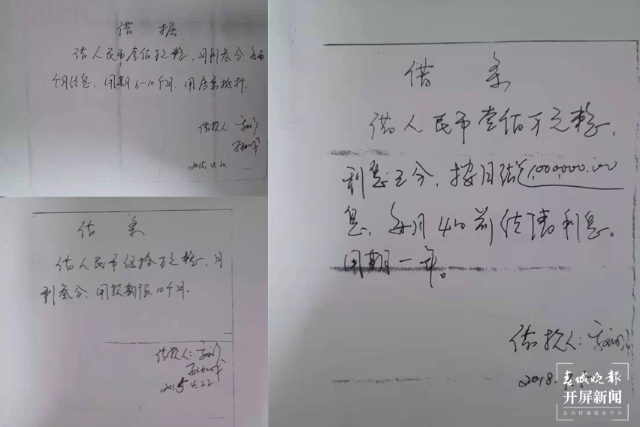 借 据
借人民币壹佰万元整,月利叁分 每两
个月结息,用期6-10个月.用房产抵押.
借款人
2015.4.20
借 条
借人民币伍拾万元整.月
利叁分.用款期限10个月.
借款人:
2015.4.22
借 条
借人民币壹佰万元整,
利息三分,按月结 1,000,000.00
息,每月4日前结清利息。
用期一年。
借款人:
2018.
春城晚报
开屏新闻